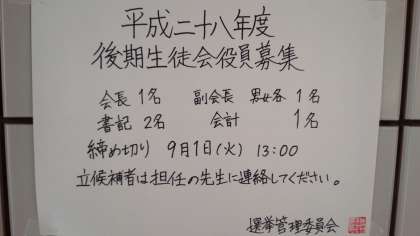 平成二十八年度
後期生徒会役員募集
会長 1名 副会長 男女各 1名
書記 2名 会計 1名
締め切り 9月1日(火) 13:00
立候補者は担任の先生に連絡してください。
選挙管理委員会